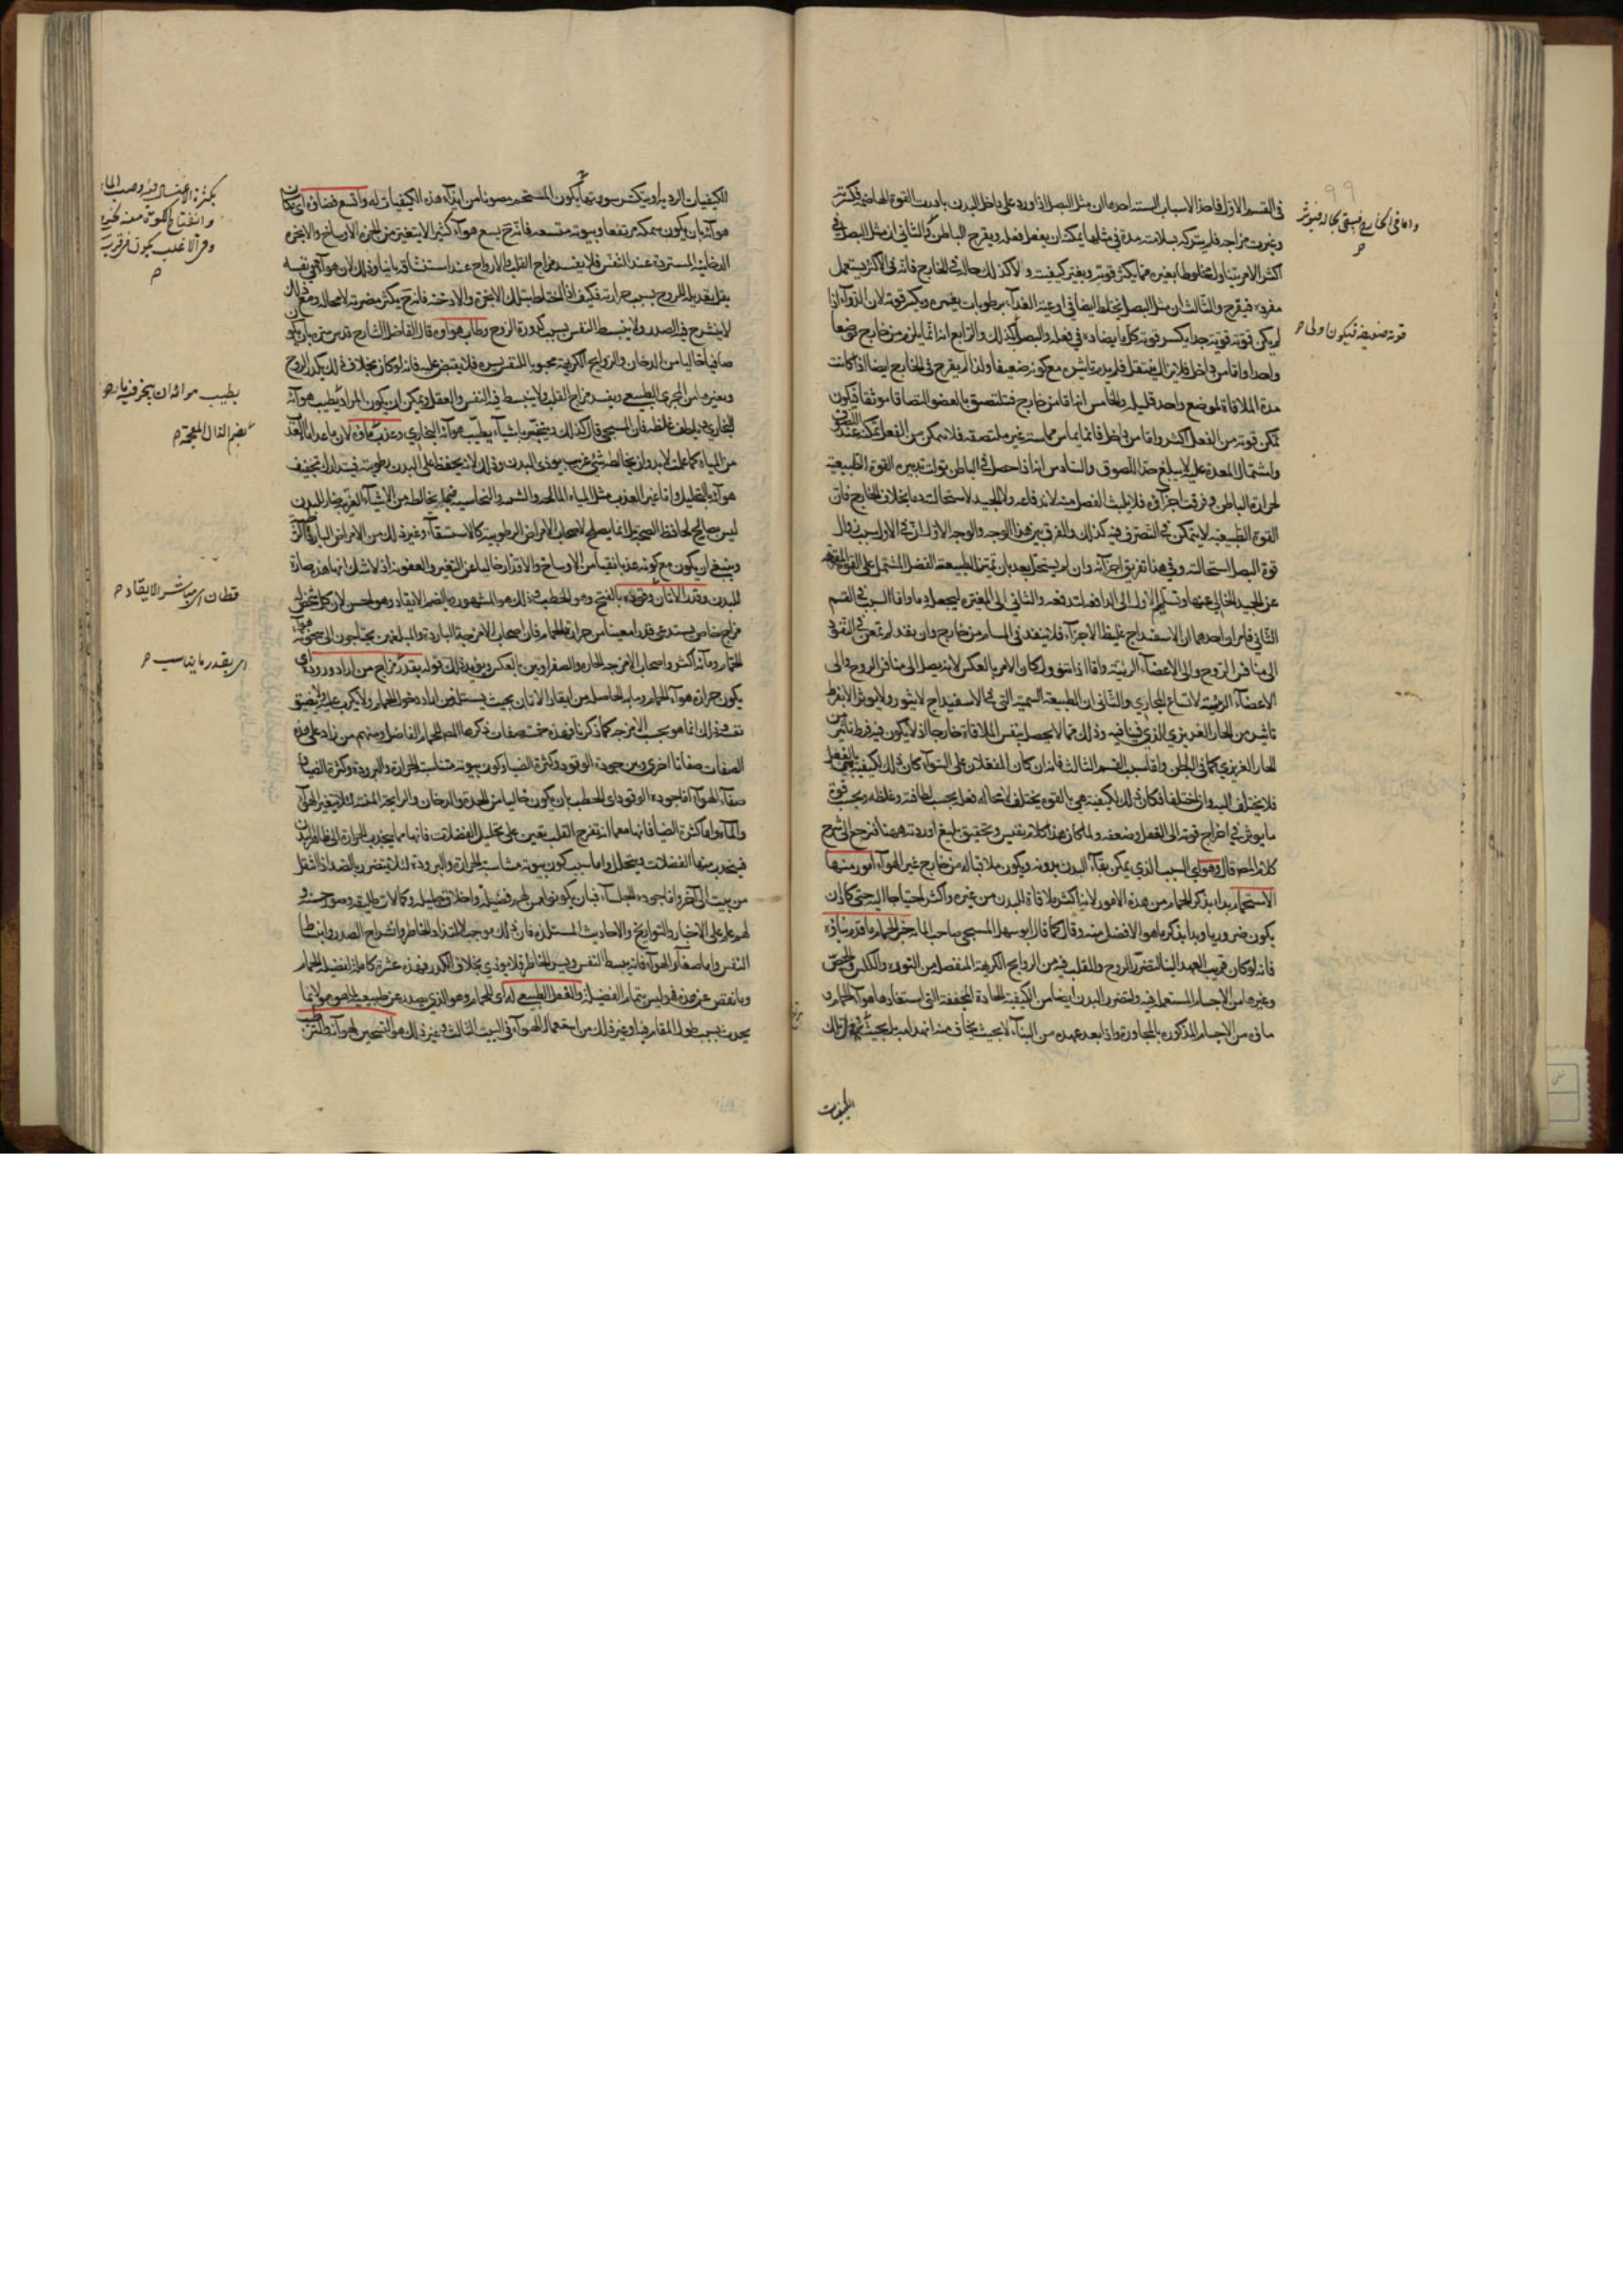 في القسم الاول فاحد الاسباب الستة احدها ان مثل البصل اذا ورد على داخل البدن بادرت القوة الهاضمة فكسرته
وغيرت مزاجه فلم يتركه بسلامته مدة في مثلها يمكنه ان يفعل فعله ويقرح الباطن والثاني ان مثل البصل في
اكثر الامر يتناول مخلوطا بغيره مما يكسر قوته ويغير كيفيته ولا كذلك حاله في الخارج فانه في الاكثر يستعمل
مفردا فيقرح والثالث ان مثل البصل يختلط ايضا في اوعية الغذاء برطوبات تغمره ويكسر قوته لان الدواء اذا
لم يكن قوته قوية جدا يكسر قوته كل ما يضاده في فعله والبصل كذلك والرابع انه انما يلزم من خارج موضعا
واحدا واما من داخل فلا يزال ينتقل فلم يدم تاثيره مع كونه ضعيفا ولذا لم يقرح في الخارج ايضا اذا كانت
مدة الملاقاة لموضع واحد قليلة والخامس انه اما من خارج فتلتصق بالعضو التصاقا موثقا فيكون
تمكن قوته من الفعل اكثر واما من داخل فانما يماس مماسة غير ملتصقة فلا يمكن من الفعل تمكنه عند اللصوق
واشتمال المعدة عليه لا يبلغ حد اللصوق والسادس انه اذا حصل في الباطن تولت تدبيره القوة الطبيعية
لحرارة الباطن وفرقت اجزاؤه فلا يلبث الفضل منه لاندفاعه ولا الجيد لاستحالته دما بخلاف الخارج فان
القوة الطبيعية لا يتمكن في التصرف فيه كذلك والفرق بين هذا الوجه والوجه الاول ان في الاول سبب زوال
قوة البصل استحالته وفي هذا تفريق اجزائه وان لم يستحل بعد بان تميز الطبيعة الفضل المشتمل على القوة المقرحة
عن الجيد الخالي عنها وتسلم الاول الى الدافعة لتدفعه والثاني الى المغيرة ليجعله دما واما السبب في القسم
الثاني فامران احدهما ان الاسفيداج غليظ الاجزاء فلا ينفذ في المسام من خارج وان نفذ لم يمعن في النفوذ
الى منافس الروح والى الاعضاء الرئيسة واما اذا تنوول كان الامر بالعكس لانه يصل الى منافس الروح والى
الاعضاء الرئيسة لاتساع المجاري والثاني ان الطبيعة السمية التي في الاسفيداج لا يثور ولا يوثر الا بفرط
تاثير من الحار الغريزي الذي فينا فيه وذلك مما لا يحصل بنفس الملاقاة خارجا اذ لا يكون فيه فرط تاثير من
الحار الغريزي كما في الباطن واما سبب القسم الثالث فانه ان كان المنفعلان على السواء كان ذلك لكيفية هي بالفعل
فلا يختلف البتة وان اختلفا فكان ذلك لكيفية هي بالقوة يختلف انتحاله فعل بحسب لطافته وغلظه وبحسب قوة
ما يوثر في اخراج قوته الى الفعل وضعفه ولما كان هذا كلام نفيس وتحقيق بليغ اوردته ههنا فنرجع الى شرح
كلام المص قال وهو اي السبب الذي يمكن بقاء البدن بدونه ويكون ملاقيا له من خارج غير الهواء امور منها
الاستحمام بداء بذكر الحمام من هذه الامور لانه اكثر ملاقاة للبدن من غيره واكثر احتياجا اليه حتى كاد ان
يكون ضروريا وبدا بذكر ما هو الافضل منه وقال كما قال ابو سهل المسيحي صاحب المائة خير الحمام ما قدم بناؤه
فانه لو كان قريب العهد بالبناء لتضرر الروح والقلب فيه من الروايح الكريهة المنفصلة من النورة والكلس والجص
وغيرها من الاجسام المستعملة فيه ولتضرر البدن ايضا من الكيفية الحادة المجففة التي استفادها هواء الحمام و
ماؤه من الاجسام المذكورة بالمجاورة واذا بعد عهده من البناء لا بحيث يخاف منه انهدامه بل بحيث تزول تلك
الكيفيات
واما في الخارج فيبقى بحاله فيوثر
قوته ضعيفة فيكون اولى
الكيفيات الردية او ينكسر سورتها يكون المستحم مصونا من ايذاء هذه الكيفيات له واتسع فضاؤه اي مكان
هوائه بان يكون سمكه مرتفعا وبيوته متسعة فانه ح يسع هواء كثيرا لا يتغير من ابخرة الاوساخ والابخرة
الدخانية المستردة عند التنفس فلا يفسد مزاج القلب والارواح عند استنشاقه ثانيا وذلك لان هواءه في نفسه
يقل تعديله للروح بسبب حرارته فكيف اذا اختلط بتلك الابخرة والادخنة فانه ح يكثر مضرته لا محالة ومع ذلك
لا ينشرح فيه الصدر ولا ينبسط النفس بسبب كدورة الروح وطاب هواؤه قال الفاضل الشارح قدس سره بان يكون
صافيا خاليا من الدخان والروايح الكريهة محبوبا للنفس يسره فلا ينقبض عليه فانه لو كان بخلاف ذلك يكدر الروح
ويغيره من المجرى الطبيعي ويفسد مزاج القلب ولا ينبسط فيه النفس والعقل ويمكن ان يكون المراد بطيب هوائه
من المياه كما علمت لا بد وان يخالطه شيء غريب يوذي البدن وذلك لانه يحفظ على البدن رطوبته فيتدارك تجفيف
هوائه بالتحليل واما غير العذب مثل المياه المالحة والشبية والنحاسية فبما يخالطه من الاشياء الغريبة ضار للبدن
ليس بصالح لحافظ الصحة بل انما يصلح لاصحاب الامراض الرطوبية كالاستسقاء وغير ذلك من الامراض الباردة
وينبغي ان يكون مع كونه عذبا نقيا من الاوساخ والاقذار خاليا عن التغير والعفونة اذ لا شك انها هذه ضارة
للبدن وقدر الاتان وقوده بالفتح وهو الحطب وذلك هو المشهور وبالضم الايقاد وهو احسن لان كل شخص له
مزاج خاص يستدعي قدرا معينا من حرارة الحمام فان اصحاب الامزجة الباردة والبلغمين يحتاجون الى سخونة هواء
الحمام ومائه اكثر واصحاب الامزجة الحارة والصفراويين بالعكس ويؤيد ذلك قوله بقدر مزاج من اراد وروده اي
يكون حرارة هواء الحمام ومائه الحاصلة من ايقاد الاتان بحيث يستلذ من اراد دخول الحمام ولا يكرب عليه ولا يضيق
نفسه وذلك انما هو بحسب الامزجة كما ذكرنا فهذه خمس صفات ذكرها المص للحمام الفاضل ومنهم من زاد على هذه
الصفات صفاتا اخرى وهي جودة الوقود وكثرة الضياء وكون بيوته متناسبة الحرارة والبرودة وكثرة الضياء
صفاء الهواء اما جودة الوقود اي الحطب بان يكون خاليا من الحدة والدخان والرايحة المنتنة لئلا يتغير الهواء
والماء واما كثرة الضياء فانها معما انه تفرح القلب يعين على تحليل الفضلات فانها مما يجذب الحرارة الى ظاهر البدن
فينجذب معها الفضلات ويتحلل واما سبب كون بيوته متناسبة الحرارة والبرودة لئلا يتضرر بالضد اذا انتقل
من بيت الى آخر واما جودة الجلساء فبان يكونوا ممن لهم فضيلة واخلاق جميلة وكمالات وصور حسنة و
لهم علم على الاخبار والتواريخ والاحاديث المستلذة فان ذلك موجب لالتذاذ الخاطر وانشراح الصدر وانبساط
النفس واما صفاء الهواء فانه يبسط النفس ويسر الخاطر فلا يوذي بخلاف الكدر فهذه عشرة كاملة لفضيلة الحمام
وما نقص عن هذه فهو ليس بتمام الفضيلة والفعل الطبيعي له اي للحمام وهو الذي يصدر عن طبيعته بما هو هو لا بما
يحدث بسبب طول المقام فيه او غير ذلك من استعمال الهواء في البيت الثالث وغير ذلك هو التسخين بهوائه والترطيب
بكثرة الاغتسال فيه وصب الماء
بطيب هوائه ان يبخر فيه بما
بضم الذال المعجمة
قطان اي مباشر الايقاد
اي بقدر ما يناسب